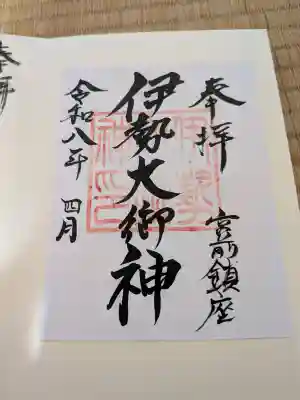 奉拝
宮前鎮座
伊勢大御神
令和八年 四月
奉拝